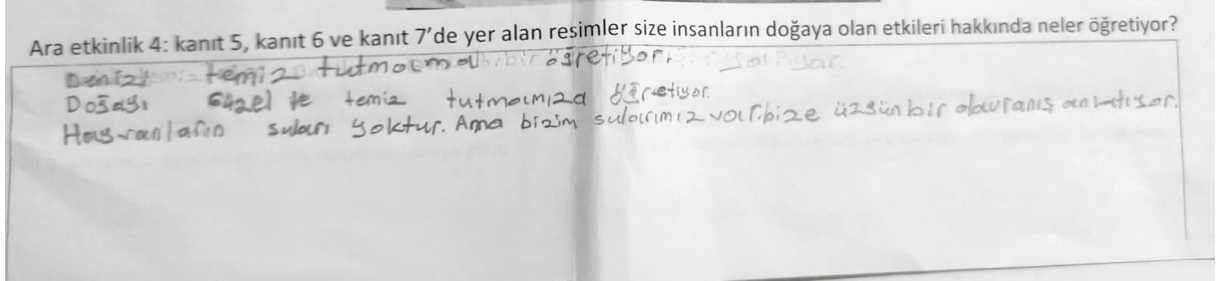 Ara etkinlik 4: kanıt 5, kanıt 6 ve kanıt 7'de yer alan resimler size insanların doğaya olan etkileri hakkında neler öğretiyor?
temiz tutmamız öğretiyor.
Doğayı Güzel te temiz tutmamıza öğretiyor.
Hayvanların suları yoktur. Ama bizim sularımız var. bize üzgün bir davranış anlatıyor.